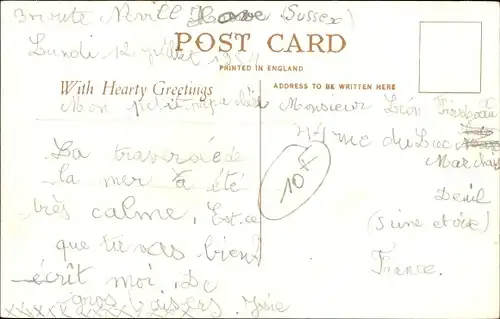 Nevill Hove (Sussex)
Lundi 12 juillet
POST CARD
PRINTED IN ENGLAND
With Hearty Greetings
ADDRESS TO BE WRITTEN HERE
Mon petit papa chéri
La traversée de
la mer a été
très calme. Est.ce
que tu vas bien
écrit moi. De
gros baisers.
Monsieur Léon
rue du Luc
Marchais
Deuil
(Seine et Oise)
France.
10F